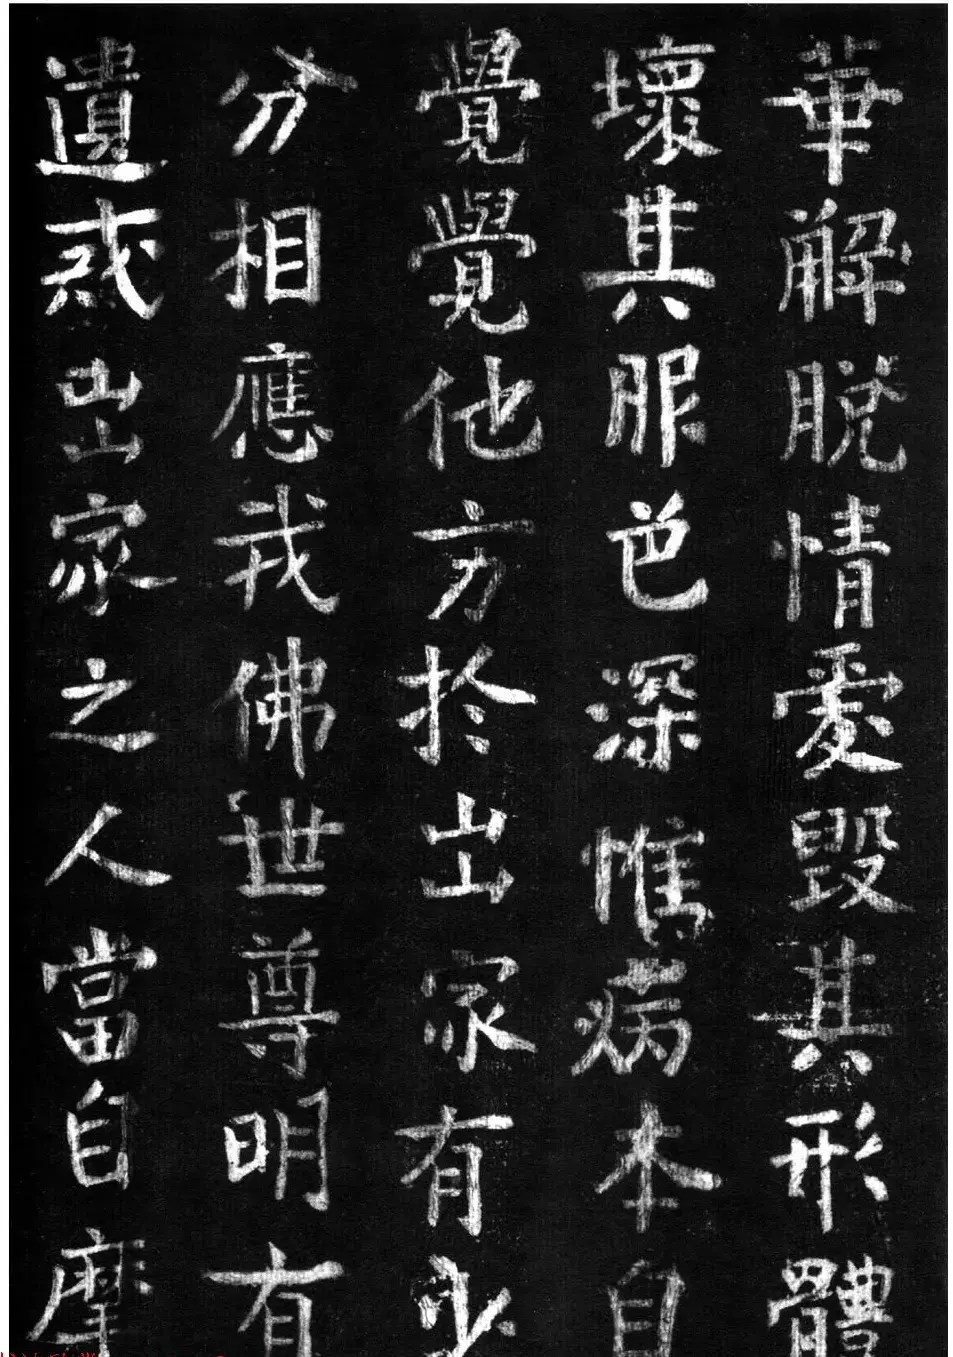 華解脫情愛毀其形體
壞其服色深惟病本自
覺覺他方於出家有少
分相應我佛世尊明有
遺惑出家之人當自摩